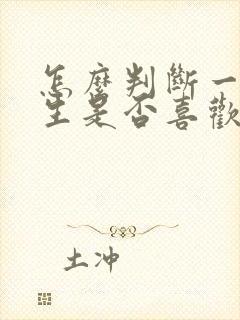 怎麼判斷一
生是否喜歡
土冲